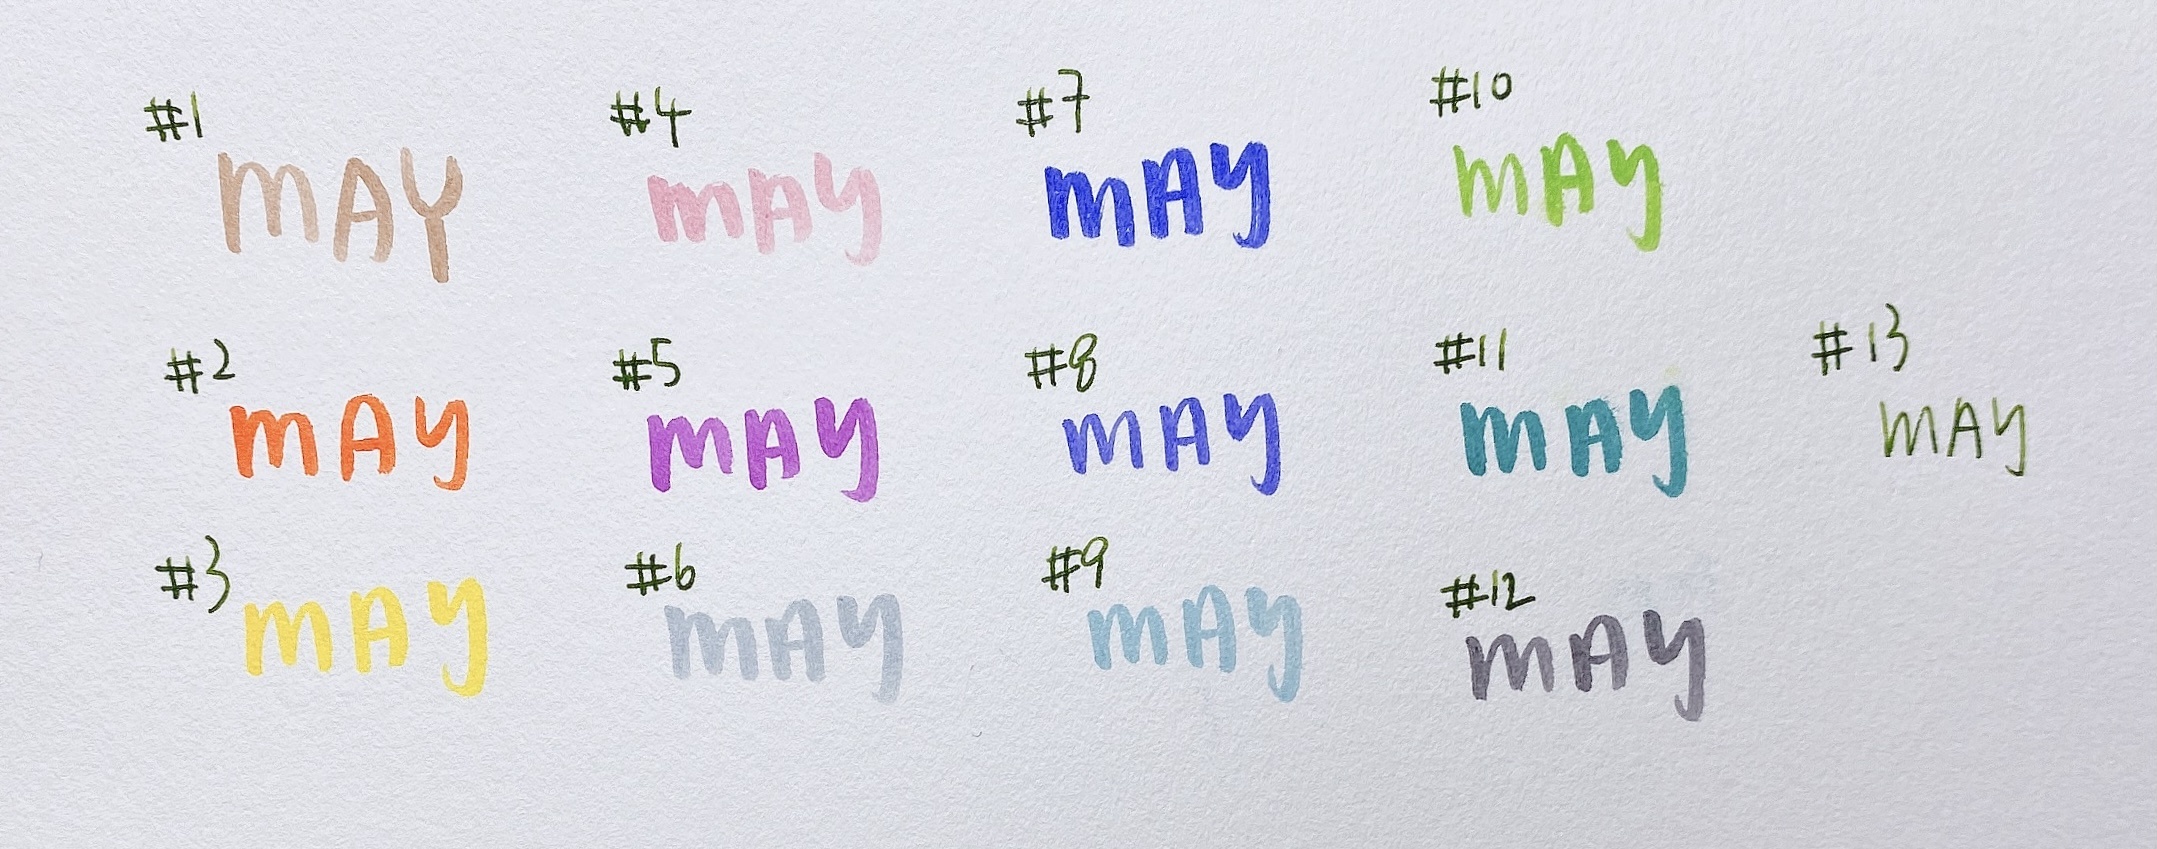 #1
MAY
#2
MAY
#3
MAY
#4
MAY
#5
MAY
#6
MAY
#7
MAY
#8
MAY
#9
MAY
#10
MAY
#11
MAY
#12
MAY
#13
MAY